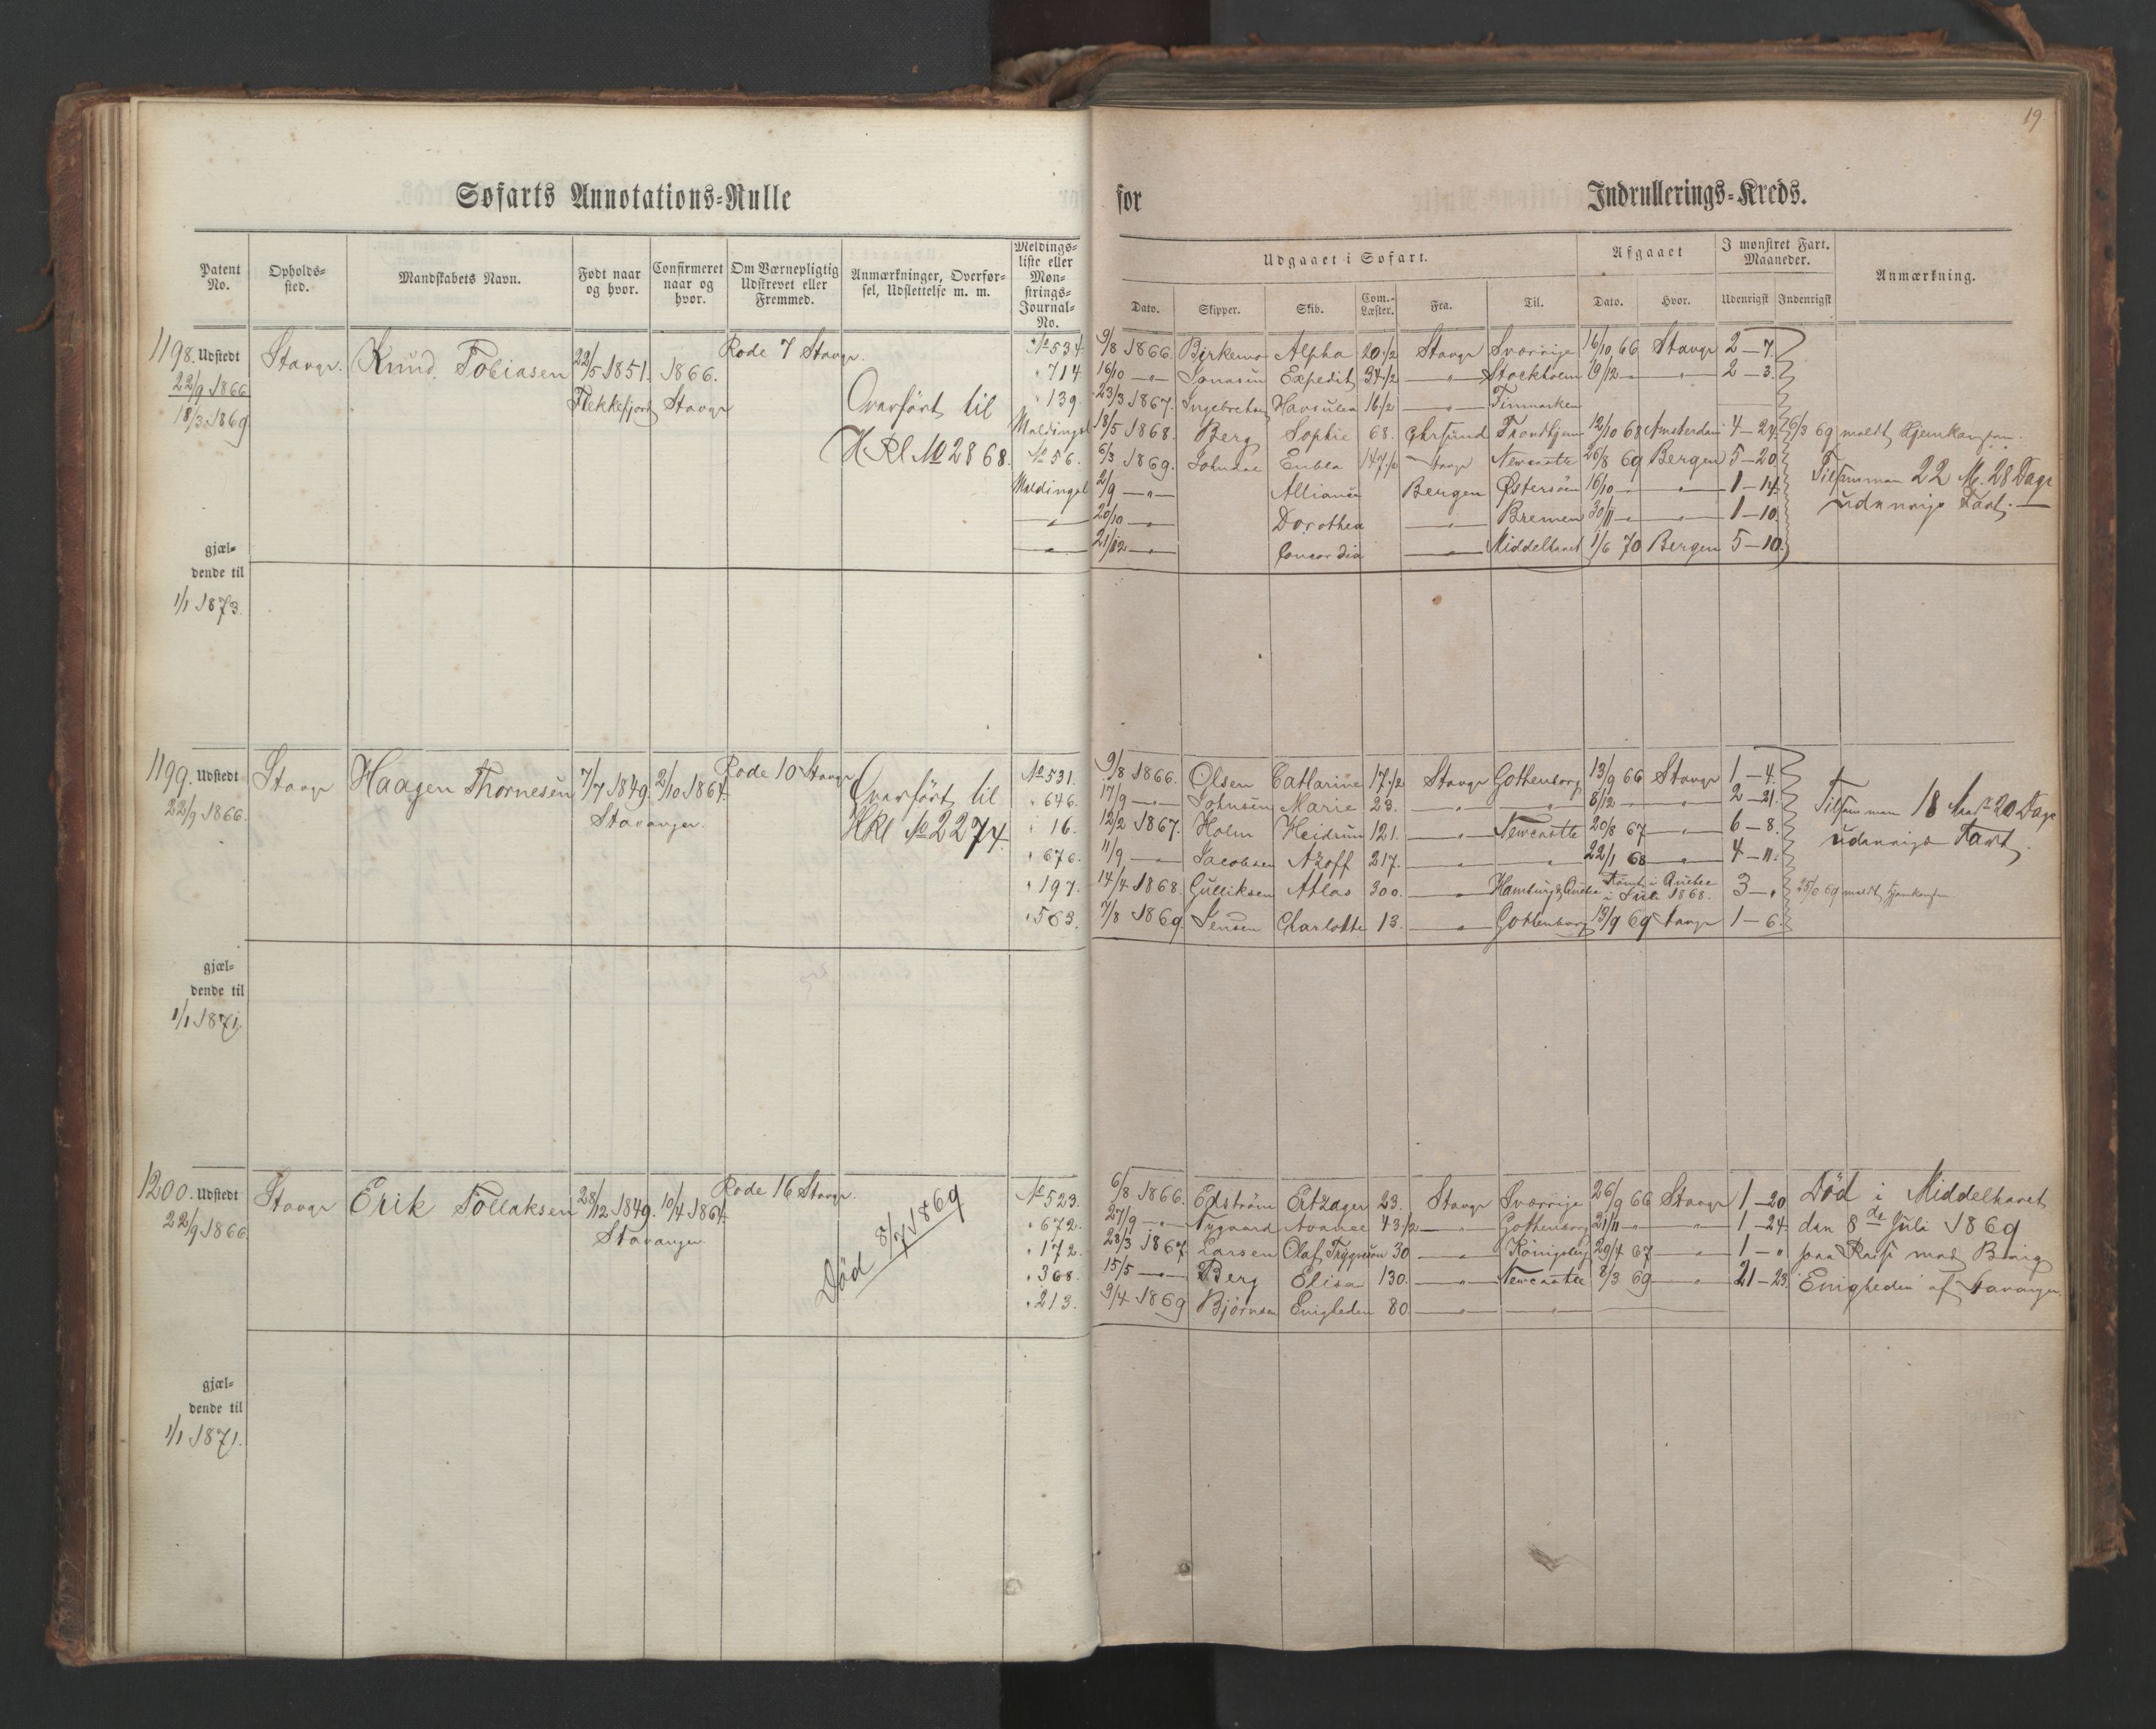 19
Søfarts Annotations-Rulle for Indrullerings-Kreds.
Patent No.
Opholds-sted.
Mandskabets Navn.
Født naar og hvor.
Confirmeret naar og hvor.
Om Værnepligtig Udskrevet eller Fremmed.
Anmærkninger, Overførsel, Udslettelse m. m.
Meldings-liste eller Mønstrings-Journal-No.
Udgaaet i Søfart.
Dato. Skipper. Skib. Com.-Læster. Fra. Til.
Afgaaet
Dato. Hvor.
I mønstret Fart. Maaneder.
Udenrigst Indenrigst
Anmærkning.
1198. Udstedt 22/9 1866 18/3 1869
Stavgr. Knud Tobiasen 22/5 1851. 1866. Rode 7 Stavgr.
Flekkefjord Stavgr
Overført til
HRl No 2868.
No 534 9/8 1866. Birkemo Alpha 20 1/2 Stavgr Sverrige 16/10 66 Stavgr 2-7.
" 714 16/10 —"— Jonasen Expedit 34 1/2 —"— Stockholm 19/12 —"— " 2-3.
" 139 23/3 1867. Ingebretsen Havsulen 16 1/2 —"— Finmarken
Meldingsl 18/5 1868. Berg Sophie 68. Ghrsund Trondhjem 12/10 68 Amsterdam 4-24. 26/3 69 meldt Hjemkommen.
No 56. 6/3 1869. Johnsen Enbla 147 1/2 Stavgr Newcastle 26/8 69 Bergen 5-20.
Meldingsl 2/9 —"— Alliance Bergen Østersøen 16/10 —"— " 1-14.
—"— 20/10 —"— Dorothea —"— Bremen 30/11 —"— " 1-10.
—"— 21/12 —"— Concordia —"— Middelhavet 1/6 70 Bergen 5-10.
Tilsammen 22 M. 28 Dage
udenrigs Fart.—
gjæl-
dende til
1/1 1873.
1199. Udstedt 22/9 1866.
Stavgr Haagen Thornesen 7/7 1849. 2/10 1864. Rode 10 Stavgr
Stavanger.
Overført til
HRl No 2274.
No 531. 9/8 1866. Olsen Cathrine 17 1/2 Stavgr Gothenborg 13/9 66 Stavgr 1-4.
" 646. 17/9 —"— Johnsen Marie 23. —"— —"— 8/12 —"— " 2-21.
" 16. 12/2 1867. Holm Heidrun 121. —"— Newcastle 20/8 67 —"— 6-8.
" 676. 11/9 —"— Jacobsen Azoff 217. —"— —"— 22/1 68 —"— 4-11.
" 197. 14/4 1868. Gulliksen Atlas 300. —"— Hamburg & Quebec Rømt i Quebec i Juli 1868. 3-"
" 563. 7/8 1869. Jensen Charlotte 13. —"— Gothenborg 13/9 69 Stavgr 1-6.
Tilsammen 18 Md 20 Dage
udenrigs Fart
gjæl-
dende til
1/1 1871.
1200. Udstedt 22/9 1866
Stavgr Erik Tollaksen 28/12 1849. 10/4 1864. Rode 16 Stavgr.
Stavanger
Død 8/7 1869
No 523. 6/8 1866. Edström Ertzager 23. Stavgr Sverrige 26/9 66 Stavgr 1-20
" 672. 27/9 —"— Nygaard Avance 43 1/2 —"— Gothenborg 21/11 —"— " 1-24.
" 172. 28/3 1867 Larsen Olaf Trygveson 30 —"— Königsberg 29/4 67 —"— 1-"
" 368. 15/5 —"— Berg Elisa 130. —"— Newcastle 8/3 69 —"— 21-23.
" 213. 9/4 1869 Bjørnsen Enigheden 80 —"— —"—
Død i Middelhavet
den 8de Juli 1869
paa Reise med Brig
Enigheden af Stavanger.
gjæl-
dende til
1/1 1871.